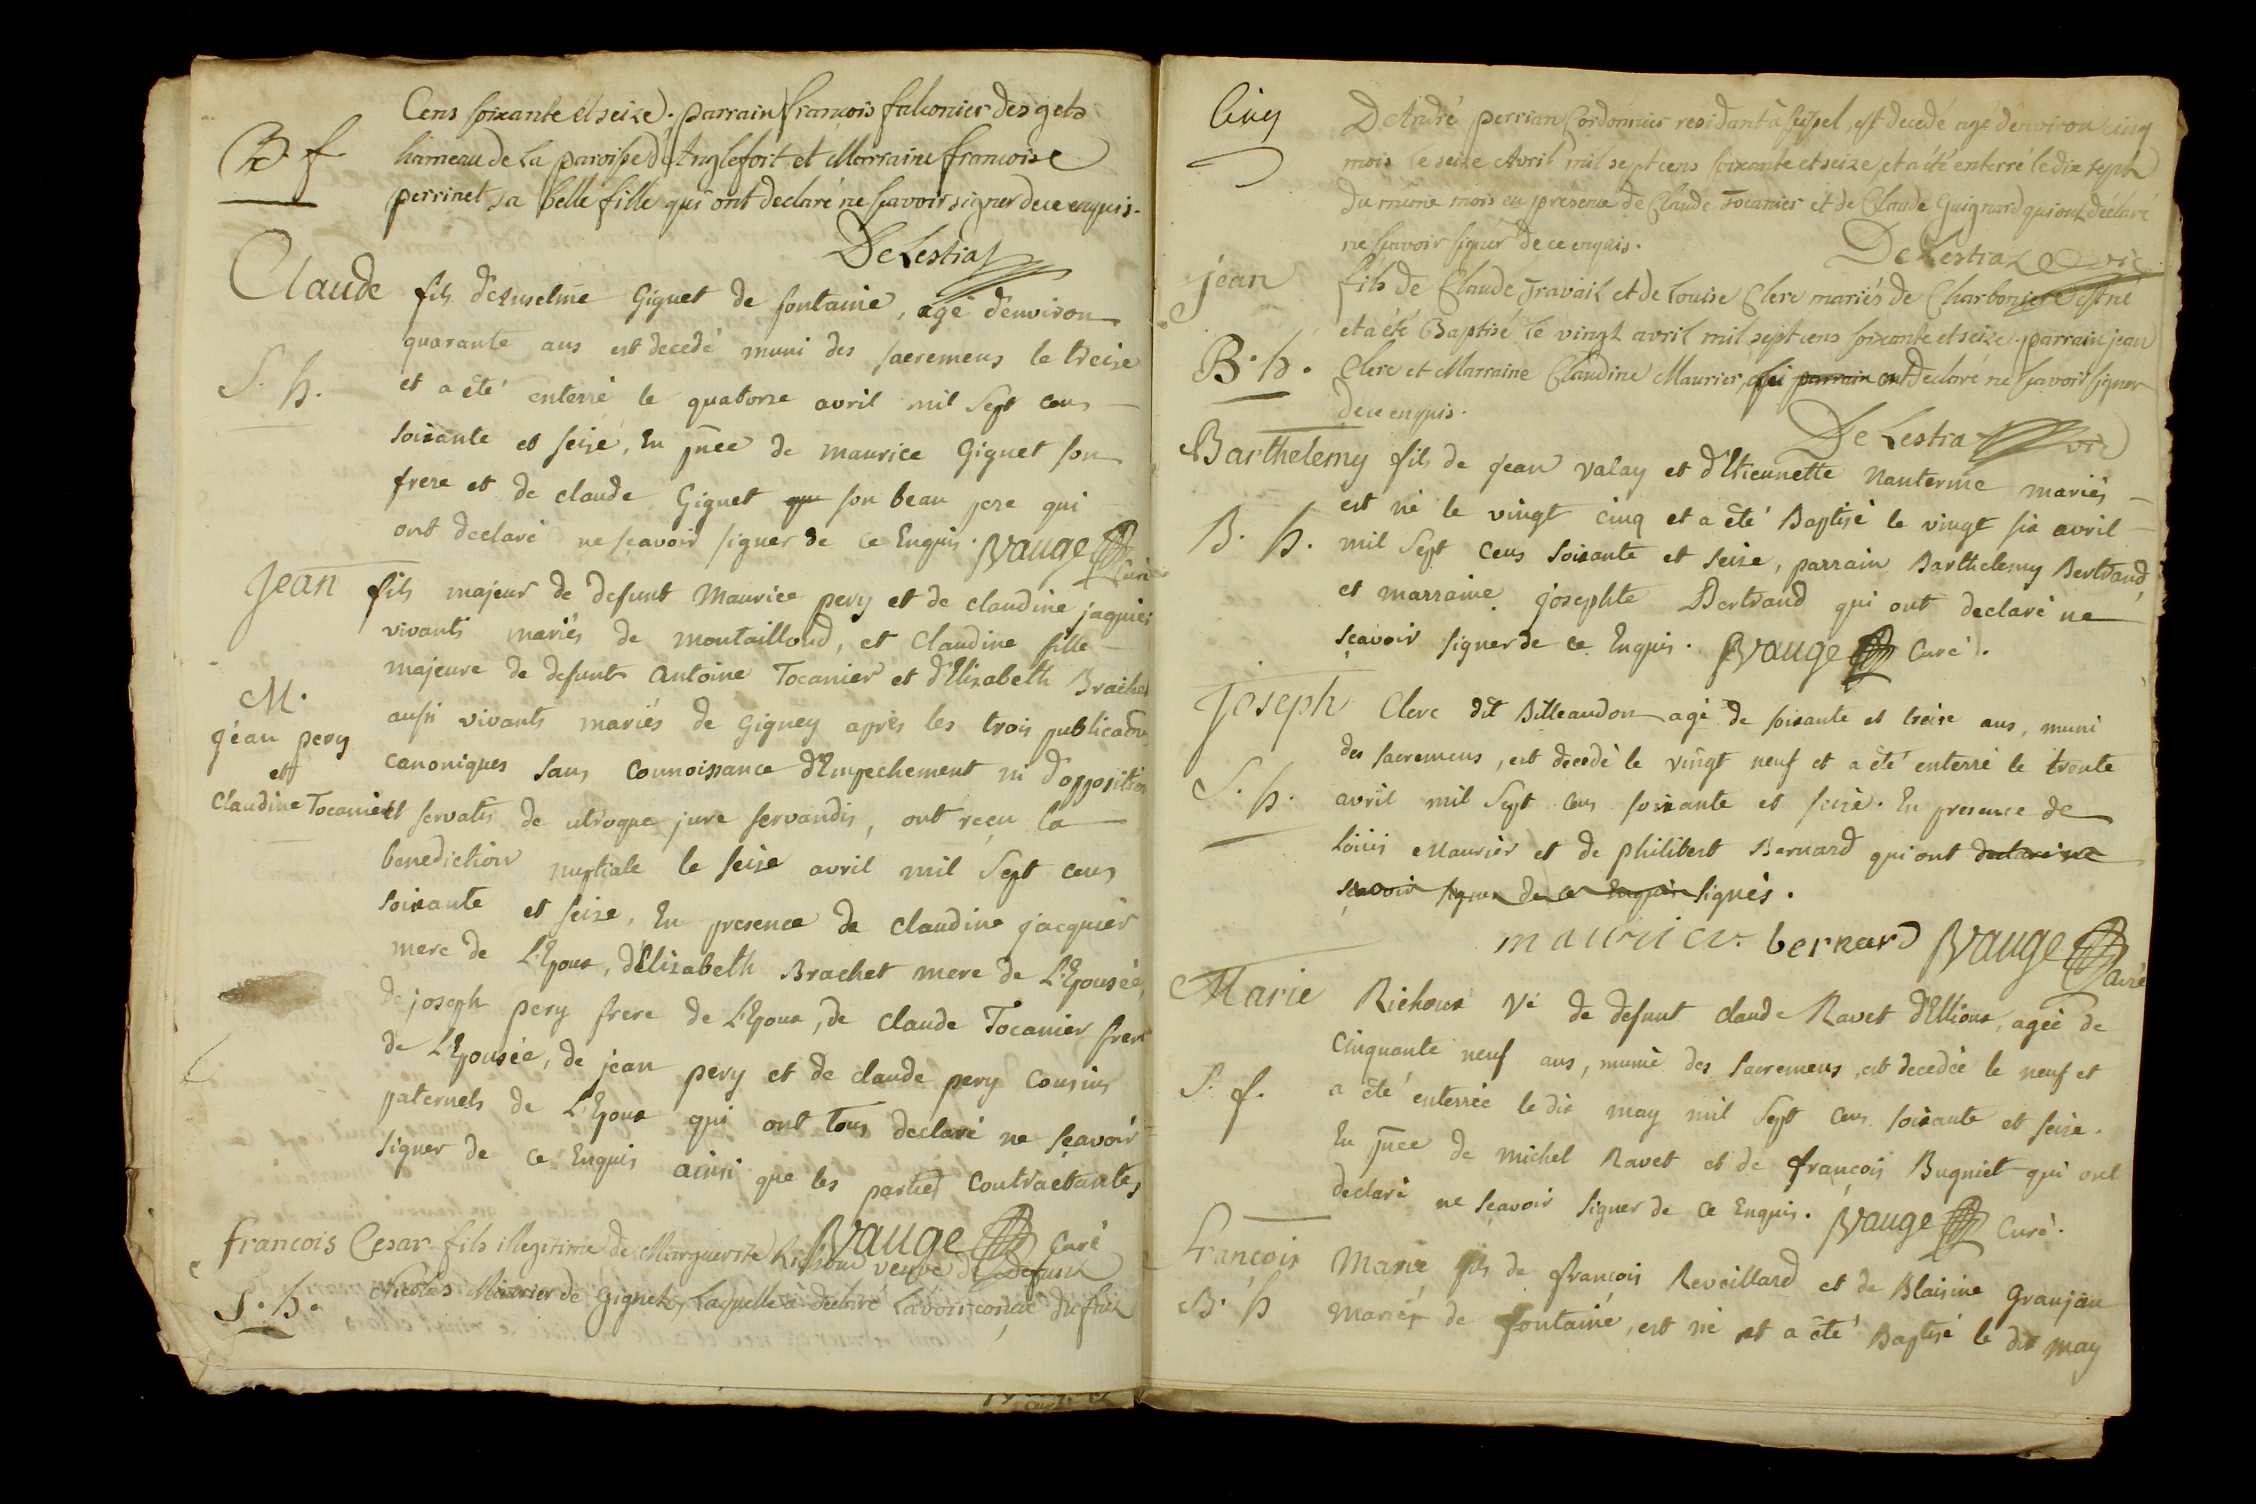 Cens soixante et seize. parrain francois falconier des gets
B. f.
hameau de la paroisse d'Anglefort et Marraine francoise
perrinet sa belle fille qui ont declaré ne scavoir signer de ce enquis.
De Lestra
Claude fils d'Anselme Giguet de fontaine, agé d'environ
quarante ans est decedé muni des sacremens le treize
S. h.
et a été enterré le quatorze avril mil Sept cens
soixante et seize, En pnce de maurice Giguet son
frere et de claude Giguet son beau pere qui
ont declaré ne sçavoir signer de ce Enquis. Vauge Curé
Jean fils majeur de defunt Maurice pery et de claudine jaquier
vivants mariés de montailloud, et Claudine fille
majeure de defunt Antoine Tocanier et d'Elizabeth Brachet
M.
jéan pery
et
Claudine Tocanier
aussi vivants mariés de Gigney après les trois publicaõns
canoniques sans connoissance d'Empechement ni d'opposition
et servatis de utroque jure servandis, ont reçu la
benediction nuptiale le seize avril mil Sept cens
soixante et seize, En presence de claudine jacquier
mere de L'Epoux, d'Elizabeth Brachet mere de L'Epousée,
de joseph pery frere de L'Epoux, de claude Tocanier frere
de L'Epousée, de jean pery et de claude pery Cousins
paternels de L'Epoux qui ont tous declaré ne sçavoir
signer de ce Enquis ainsi que les parties Contractantes
Vauge Curé
francois Cesar fils illegitime de Marguerite Richoux veuve de defunt
S. h.
Nicolas Maurier de Gignez, laquelle a declaré l'avoir conçu du fait
Cinq
D'André perrian Cordonnier residant à seyssel, est decedé agé d'environ cinq
mois le seize Avril mil sept cens soixante et seize et a été enterré le dix sept
du même mois en présence de Claude Tocanier et de Claude Guignard qui ont declaré
ne scavoir signer de ce enquis.
De Lestra vic
jean fils de Claude Travail et de Louise Clerc mariés de Charboniere est né
et a été Baptisé le vingt avril mil sept cens soixante et seize. parrain jean
B. h.
Clerc et Marraine Claudine Maurier, qui parrain ont declaré ne scavoir signer
de ce enquis.
De Lestra vic
Barthelemy fils de Jean valay et d'Etiennette Nanterme mariés
est né le vingt cinq et a été Baptisé le vingt six avril
B. h.
mil Sept Cens soixante et seize, parrain Barthelemy Bertrand,
et marraine josephte Bertrand qui ont declaré ne
sçavoir signer de ce Enquis. Vauge Curé.
Joseph Clerc dit Billeaudon agé de soixante et treize ans, muni
des sacremens, est decedé le vingt neuf et a été enterré le trente
S. h.
avril mil Sept Cens soixante et seize. En presence de
loüis Maurier et de philibert Bernard qui ont declaré ne
sçavoir signer de ce Enquis signés.
maurier bernard Vauge Curé
Marie Richoux Ve de defunt claude Ravet d'Ettioux, agée de
cinquante neuf ans, munie des Sacremens, est decedée le neuf et
S. f.
a été enterrée le dix may mil Sept Cens soixante et seize.
En pnce de michel Ravet et de françois Bugniet qui ont
declaré ne sçavoir signer de ce Enquis. Vauge Curé.
François Marie fils de françois Reveillard et de Blaisine Granjan
B. h
mariés de fontaine, est né et a été Baptisé le dix may